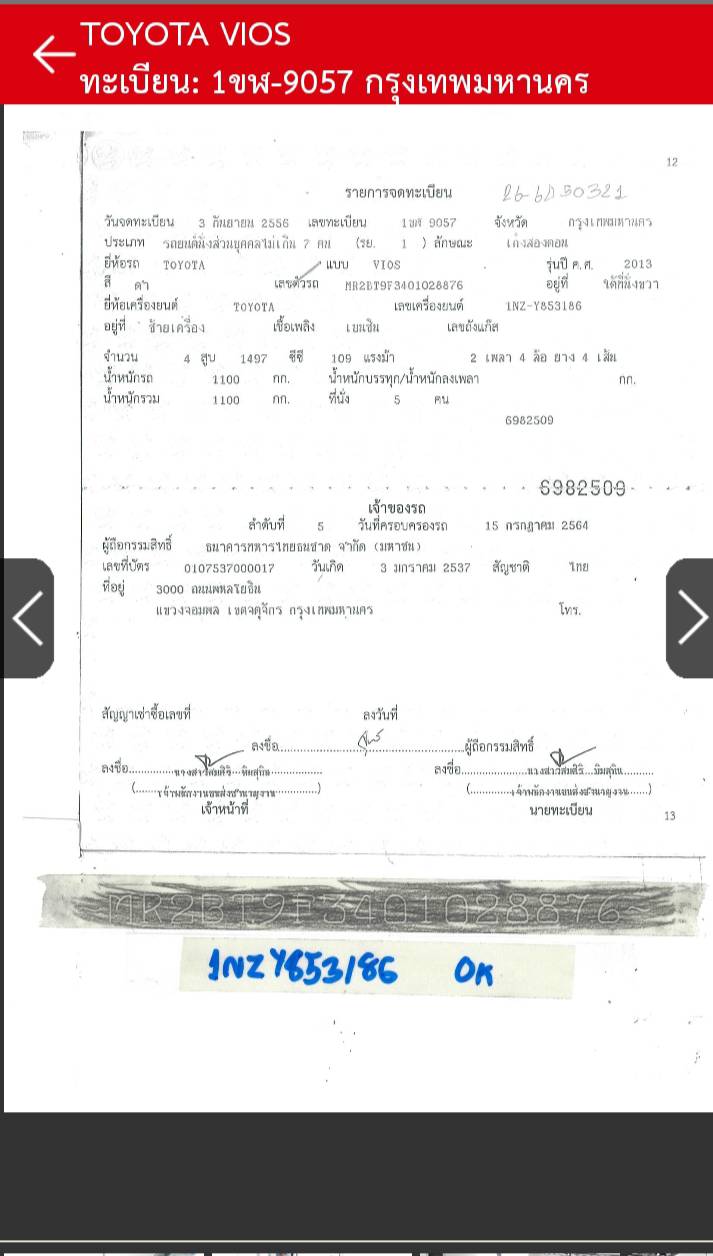 TOYOTA VIOS
ทะเบียน: 1ขฬ-9057 กรุงเทพมหานคร
12
รายการจดทะเบียน
วันจดทะเบียน 3 กันยายน 2556 เลขทะเบียน 1ขฬ 9057 จังหวัด กรุงเทพมหานคร
ประเภท รถยนต์นั่งส่วนบุคคลไม่เกิน 7 คน (รย. 1 ) ลักษณะ เก๋งสองตอน
ยี่ห้อรถ TOYOTA แบบ VIOS รุ่นปี ค.ศ. 2013
สี ดำ เลขตัวรถ MR2BT9F3401028876 อยู่ที่ ใต้ที่นั่งขวา
ยี่ห้อเครื่องยนต์ TOYOTA เลขเครื่องยนต์ 1NZ-Y853186
อยู่ที่ ซ้ายเครื่อง เชื้อเพลิง เบนซิน เลขถังแก๊ส
จำนวน 4 สูบ 1497 ซีซี 109 แรงม้า 2 เพลา 4 ล้อ ยาง 4 เส้น
น้ำหนักรถ 1100 กก. น้ำหนักบรรทุก/น้ำหนักลงเพลา กก.
น้ำหนักรวม 1100 กก. ที่นั่ง 5 คน
6982509
6982509
เจ้าของรถ
ลำดับที่ 5 วันที่ครอบครองรถ 15 กรกฎาคม 2564
ผู้ถือกรรมสิทธิ์ ธนาคารทหารไทยธนชาต จำกัด (มหาชน)
เลขที่บัตร 0107537000017 วันเกิด 3 มกราคม 2537 สัญชาติ ไทย
ที่อยู่ 3000 ถนนพหลโยธิน
แขวงจอมพล เขตจตุจักร กรุงเทพมหานคร โทร.
สัญญาเช่าซื้อเลขที่ ลงวันที่
ลงชื่อ ผู้ถือกรรมสิทธิ์
ลงชื่อ นางสาวสมศิริ ลงชื่อ นางสาวสมศิริ
(เจ้าพนักงานขนส่งชำนาญงาน) (เจ้าพนักงานขนส่งชำนาญงาน)
เจ้าหน้าที่ นายทะเบียน
13
MR2BT9F3401028876
1NZY853186 OK